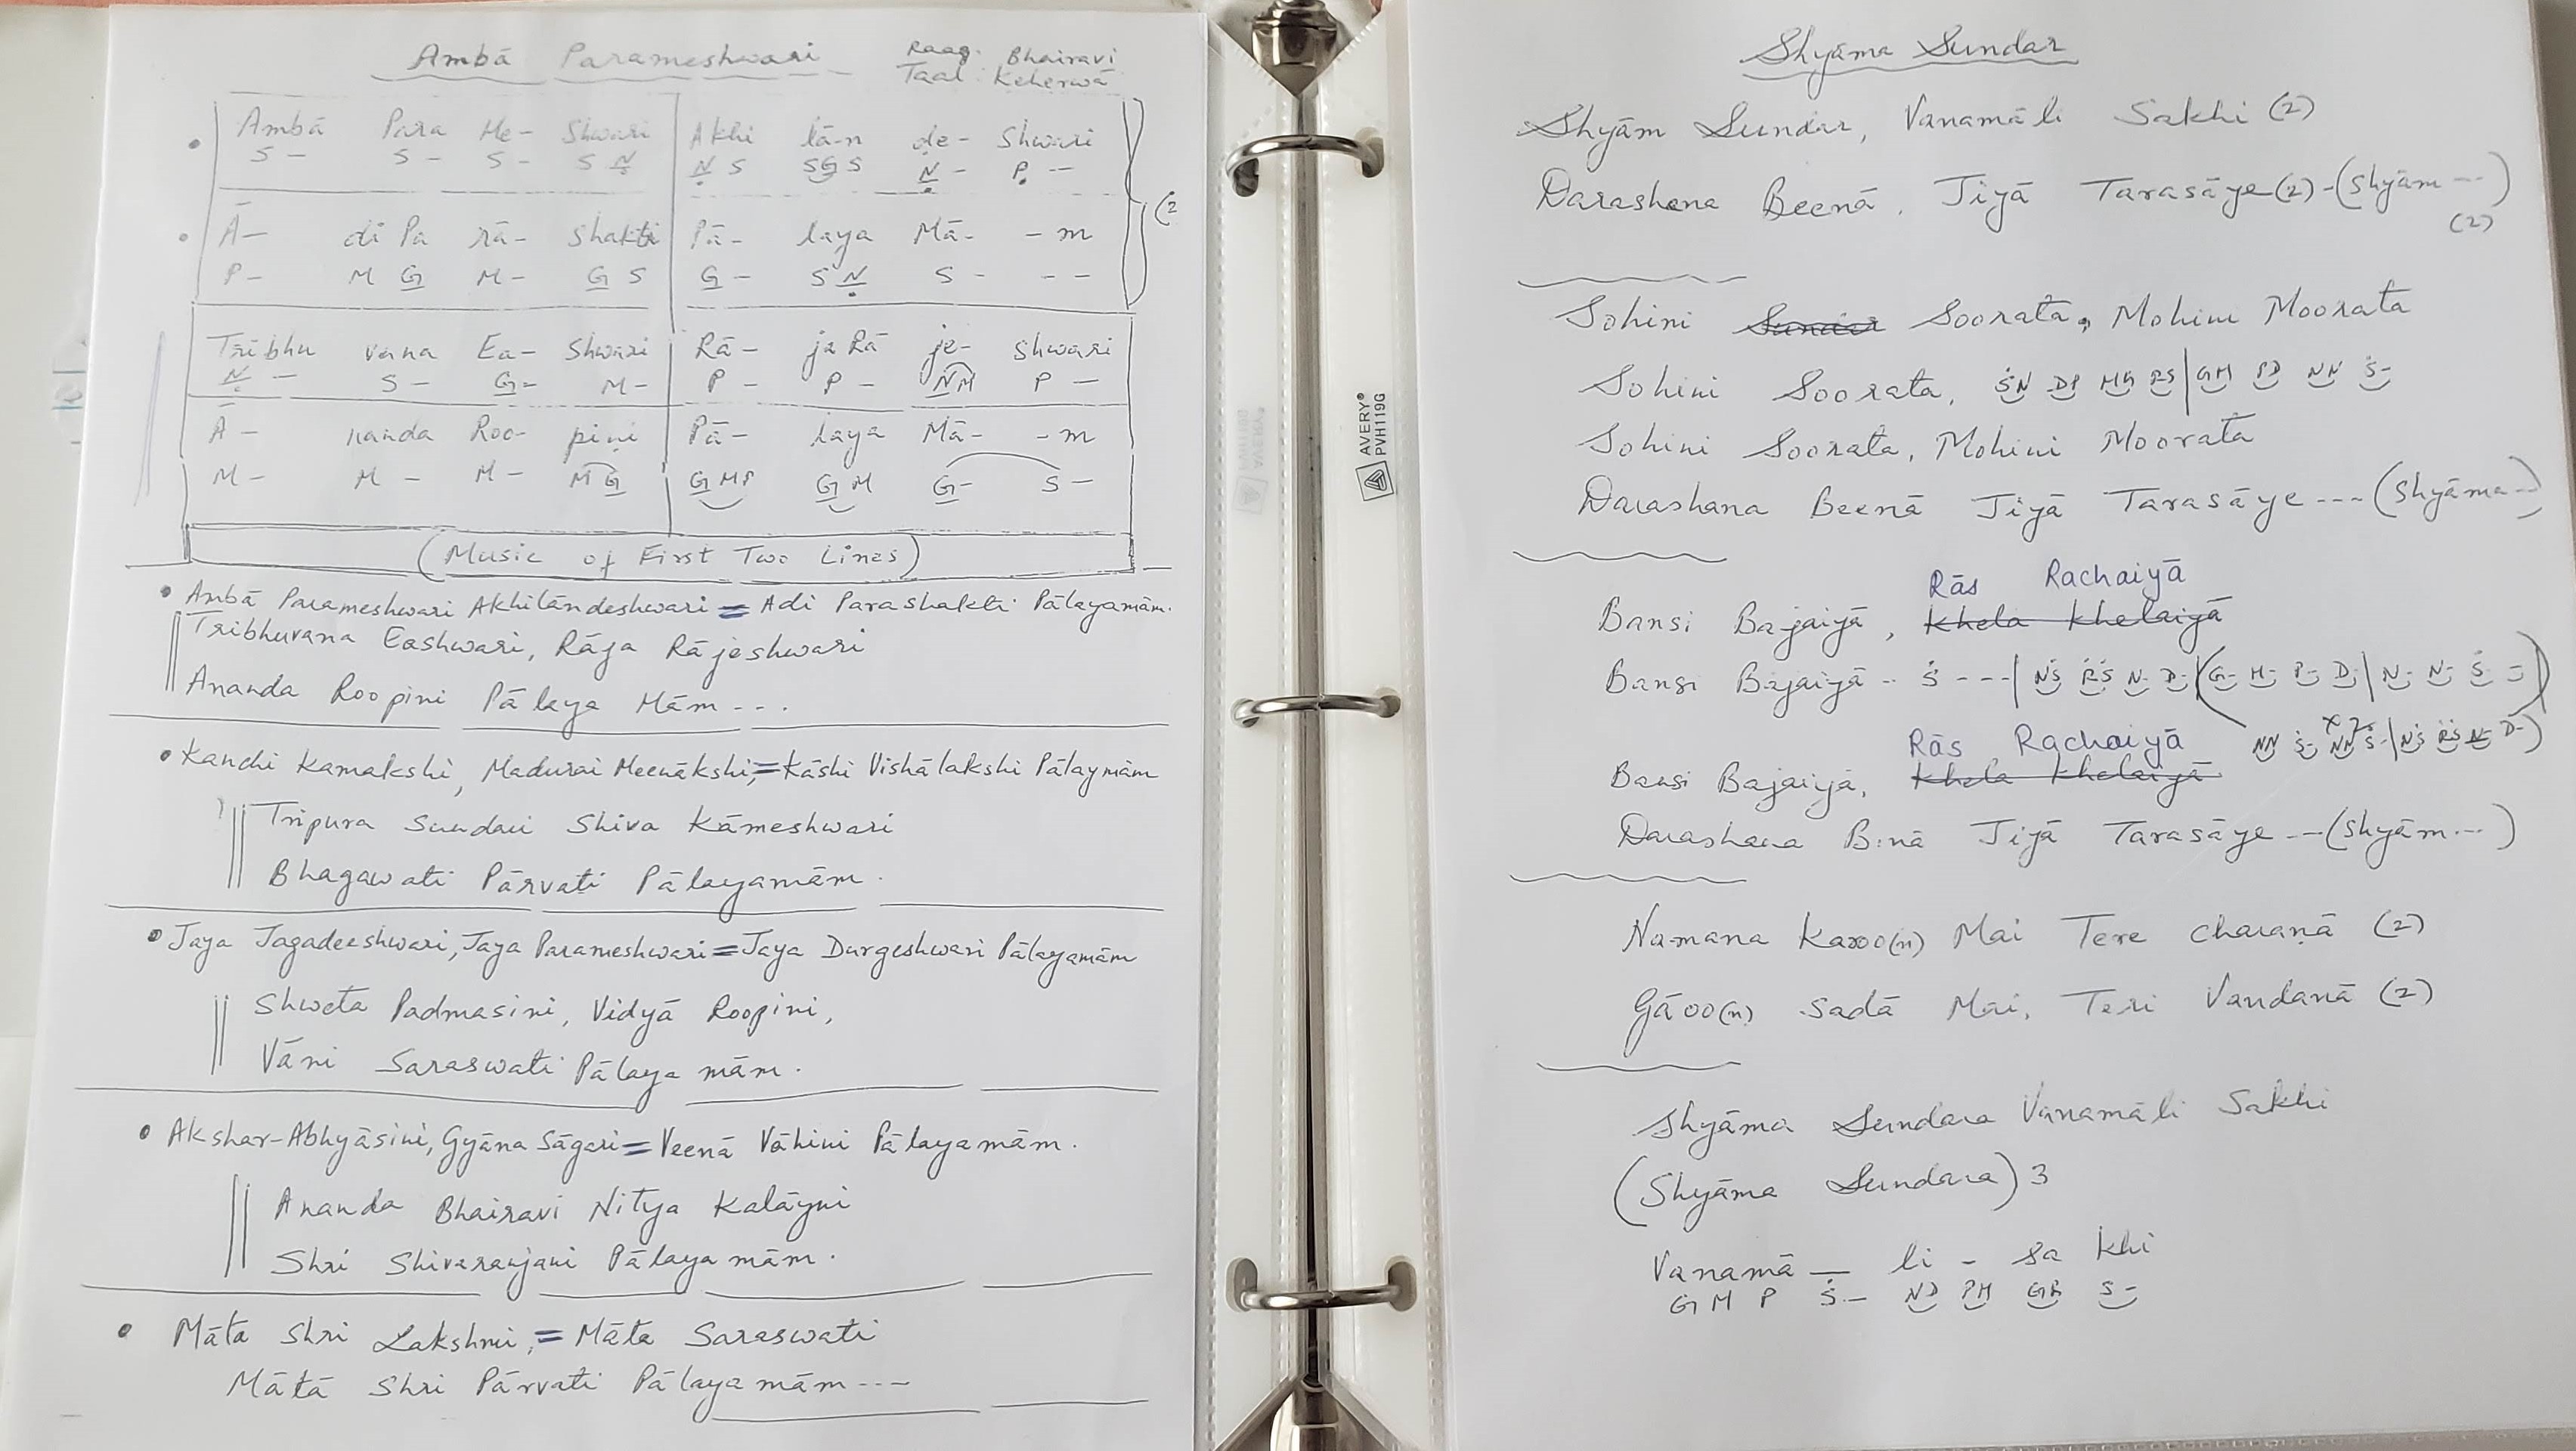 Ambā Parameshwari Raag. Bhairavi
Taal: Keherwā
Ambā Para Me- Shwari | Akhi lā-n de- Shwari
S - S - S - S Ṇ̲ | Ṇ̲ S SG̲ S Ṇ̲ - P̣ --
Ā- di Pa rā- Shakti | Pā- laya Mā- - m (2
P - M G̲ M - G̲ S | G̲ - S Ṇ̲ S - - -
Tribhu vana Ea- Shwari | Rā- ja Rā je- Shwari
Ṇ̲ - S - G̲ - M - | P - P - N̲M P -
Ā - nanda Roo- pini | Pā- laya Mā- - m
M - M - M - M G̲ | G̲ M P G̲ M G̲ - S -
(Music of First Two Lines)
• Ambā Parameshwari Akhilāndeshwari = Adi Parashakti Pālayamām.
Tribhuvana Eashwari, Rāja Rājeshwari
Ananda Roopini Pālaya Mām - - .
• Kanchi Kamakshi, Madurai Meenākshi, = Kāshi Vishālakshi Pālaymām
Tripura Sundari Shiva Kāmeshwari
Bhagawati Pārvati Pālayamām.
• Jaya Jagadeeshwari, Jaya Parameshwari = Jaya Durgeshwari Pālayamām
Shweta Padmasini, Vidyā Roopini,
Vāni Saraswati Pālaya mām.
• Akshar-Abhyāsini, Gyāna Sāgari = Veenā Vāhini Pālayamām.
Ananda Bhairavi Nitya Kalāyni
Shri Shivaranjani Pālaya mām.
• Māta Shri Lakshmi, = Māta Saraswati
Mātā Shri Pārvati Pālaya mām ---
AVERY®
PVH119G
Shyāma Sundar
Shyām Sundar, Vanamāli Sakhi (2)
Darashana Beenā, Jiyā Tarasāye (2) - (Shyām ---)
(2)
Sohini Sundar Soorata, Mohini Moorata
Sohini Soorata, ṠN DP MG RS | GM PD NN Ṡ-
Sohini Soorata, Mohini Moorata
Darashana Beenā Jiyā Tarasāye --- (Shyāma --)
Rās Rachaiyā
Bansi Bajaiyā, Khela Khelaiyā
Bansi Bajaiyā - - Ṡ - - - | NṠ ṘṠ N- D- | (G- M- P- D- | N- N- Ṡ- -)
Rās Rachaiyā NN Ṡ- NN Ṡ- | NṠ ṘṠ N- D-)
Bansi Bajaiyā, Khela Khelaiyā
Darashana Binā Jiyā Tarasāye --- (Shyām ---)
Namana Karoo(n) Mai Tere Charaṇā (2)
Gāoo(n) Sadā Mai, Teri Vandanā (2)
Shyāma Sundara Vanamāli Sakhi
(Shyāma Sundara) 3
Vanamā — li - Sa Khi
G M P Ṡ- ND PM GR S-